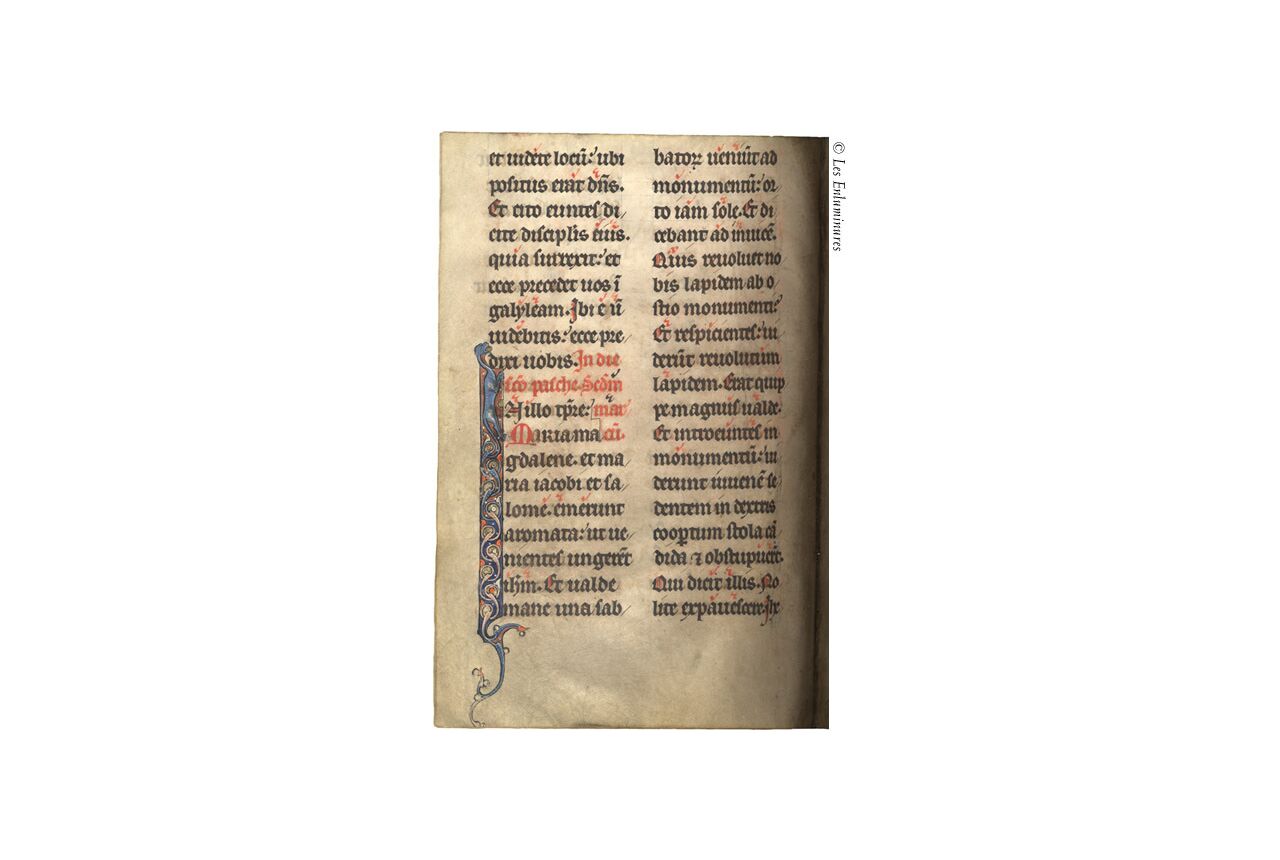 et uidete locū: ubi
positus erat dn̄s.
Et cito euntes di
cite discipl̄is eius.
quia surrexit: et
ecce precedet uos ī
galyleam. Ibi eū
uidebitis: ecce pre
dixi uobis. In die
sc̄o pasche. Sedm̄
N illo tp̄re: mar
Maria ma cū.
gdalene. et ma
ria iacobi et sa
lome. emerunt
aromata: ut ue
nientes ungerēt
ih̄m. Et ualde
mane una sab
batoꝝ ueniūt ad
monumentū: or
to iam sole. Et di
cebant ad inuicē.
Quis reuoluet no
bis lapidem ab o
stio monumenti:
Et respicientes: ui
derūt reuolutum
lapidem. Erat quip
pe magnus ualde.
Et introeuntes in
monumentū: ui
derunt iuuenē se
dentem in dextris
coopertum stola cā
dida ⁊ obstupuerūt.
Qui dicit illis. No
lite expauescere. Ih̄
© Les Enluminures